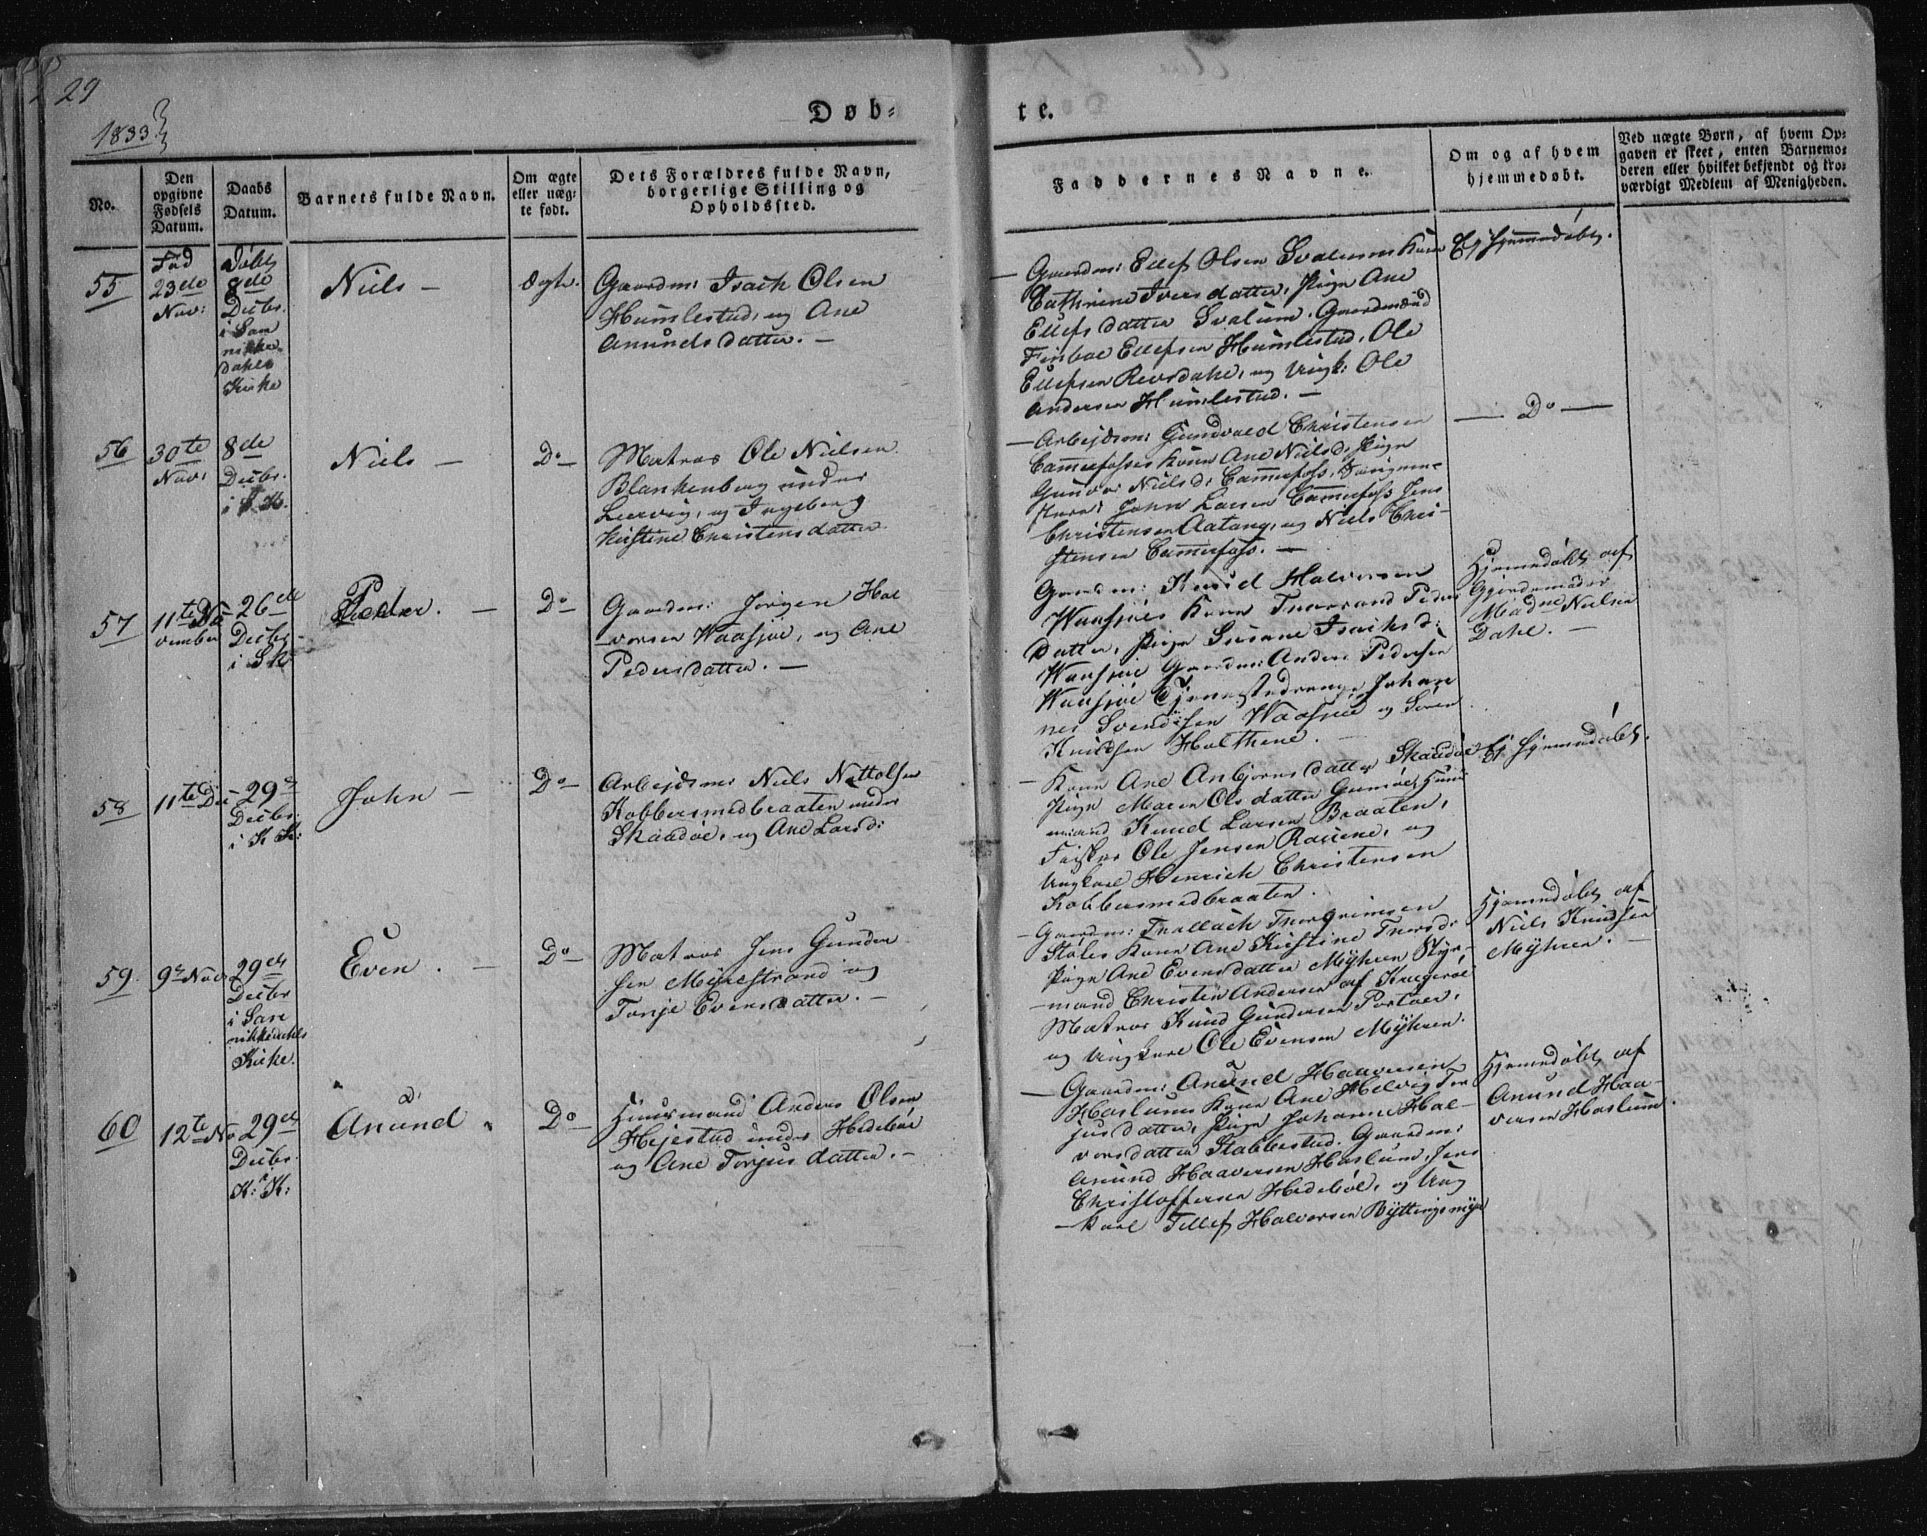 29
1833
Døb-
te.
No.
Den opgivne Fødsels Datum.
Daabs Datum.
Barnets fulde Navn.
Om ægte eller uægte født.
Dets Forældres fulde Navn, borgerlige Stilling og Opholdssted.
Faddernes Navne.
Om og af hvem hjemmedøbt.
Ved uægte Børn, af hvem Opgaven er skeet, enten Barnemoderen eller hvilket bekjendt og troværdigt Medlem af Menigheden.
55
Fød
23de
Nov:
Døbt
8de
Decbr.
i San
nikke-
dahls
Kirke
Niels —
Ægte.
Gaardm: Isach Olsen
Humlestad, og Ane
Amundsdatter. —
— Gaardm: Ellef Olsen Svalums Kone
Cathrine Iversdatter, Pige Ane
Ellefsdatter Svalum, Gaardmænd
Finboe Ellefsen Humlestad, Ole
Ellefsen Reirsdahl, og Ungk: Ole
Andersen Humlestad. —
Ej hjemmedøbt.
56
30te
Nov:
8de
Decbr.
i S. K.
Niels —
Do
Matros Ole Nielsen
Blankenberg under
Leervig, og Ingeborg
Kirstine Christensdatter
— Arbejdsm: Gundvald Christensen
Cammerfosses Kone Ane Nielsd, Pige
Gunvor Nielsd: Cammerfoss,
John Larsen Cammerfoss Jens
Christensen Aatang, og Niels Chri-
stensen Cammerfoss. —
— Do —
57
11te No-
vember
26de
Decbr.
i Sk
Peder. —
Do
Gaardm: Jørgen Hal
vorsen Waasjøe, og Ane
Pedersdatter. —
Gaardm: Knud Halvorsen
Waasjøes Kone Thorand Peders
datter, Pige Susane Isachsd:
Waasjøe Gaardm: Anders Pedersen
Waasjøe Tjenestedrenge Johan
nes Svendsen Waasjøe og Søren
Knudsen Holthene. —
Hjemmedøbt af
Gjordemoder
Madme Nielsen
Dahl. —
58
11te Dec
29de
Decbr.
i K K:
John —
Do
Arbejdsm: Niels Nottolfsen
Kobbersmedbraaten under
Skaadøe, og Ane Larsd:
— Kone Ane Anbjørnsdatter Skaadøe
Pige Maren Olsdatter Gumøe, Huus
mand Knud Larsen Braaten,
Fisker Ole Jensen Rauene, og
Ungkarl Henrich Christensen
Kobbersmedbraaten.
Ej hjemmedøbt.
59
9de Nov
29de
Decbr
i San
nikkedahls
Kirke.
Even. —
Do
Matros Jens Gunder
sen Myhrestrand og
Tonje Evensdatter. —
— Gaardm: Thollach Thorgrimsen
Støles Kone Ane Kirstine Thorsd:
Pige Ane Evensdatter Myhren Styr-
mand Christen Andersen af Kragerøe
Matros Knud Gundersen Portøer,
og Ungkarl Ole Evensen Myhren.
Hjemmedøbt af
Niels Knudsen
Myhren. —
60
12te No
29de
Decbr.
K: K:
Anund
Do
Huusmand Anders Olsen
Hejestad under Hedebøe
og Ane Torjusdatter. —
— Gaardm: Anund Haaversen
Haslums Kone Ane Helvig Tor
jusdatter, Pige Johanne Hal-
vorsdatter Stabbestad. Gaardm:
Anund Haaversen Haslum, Jens
Christoffersen Hedebøe, og Ung
karl Tellef Halvorsen Byttingsmyr
Hjemmedøbt af
Anund Haa-
versen Haslum.